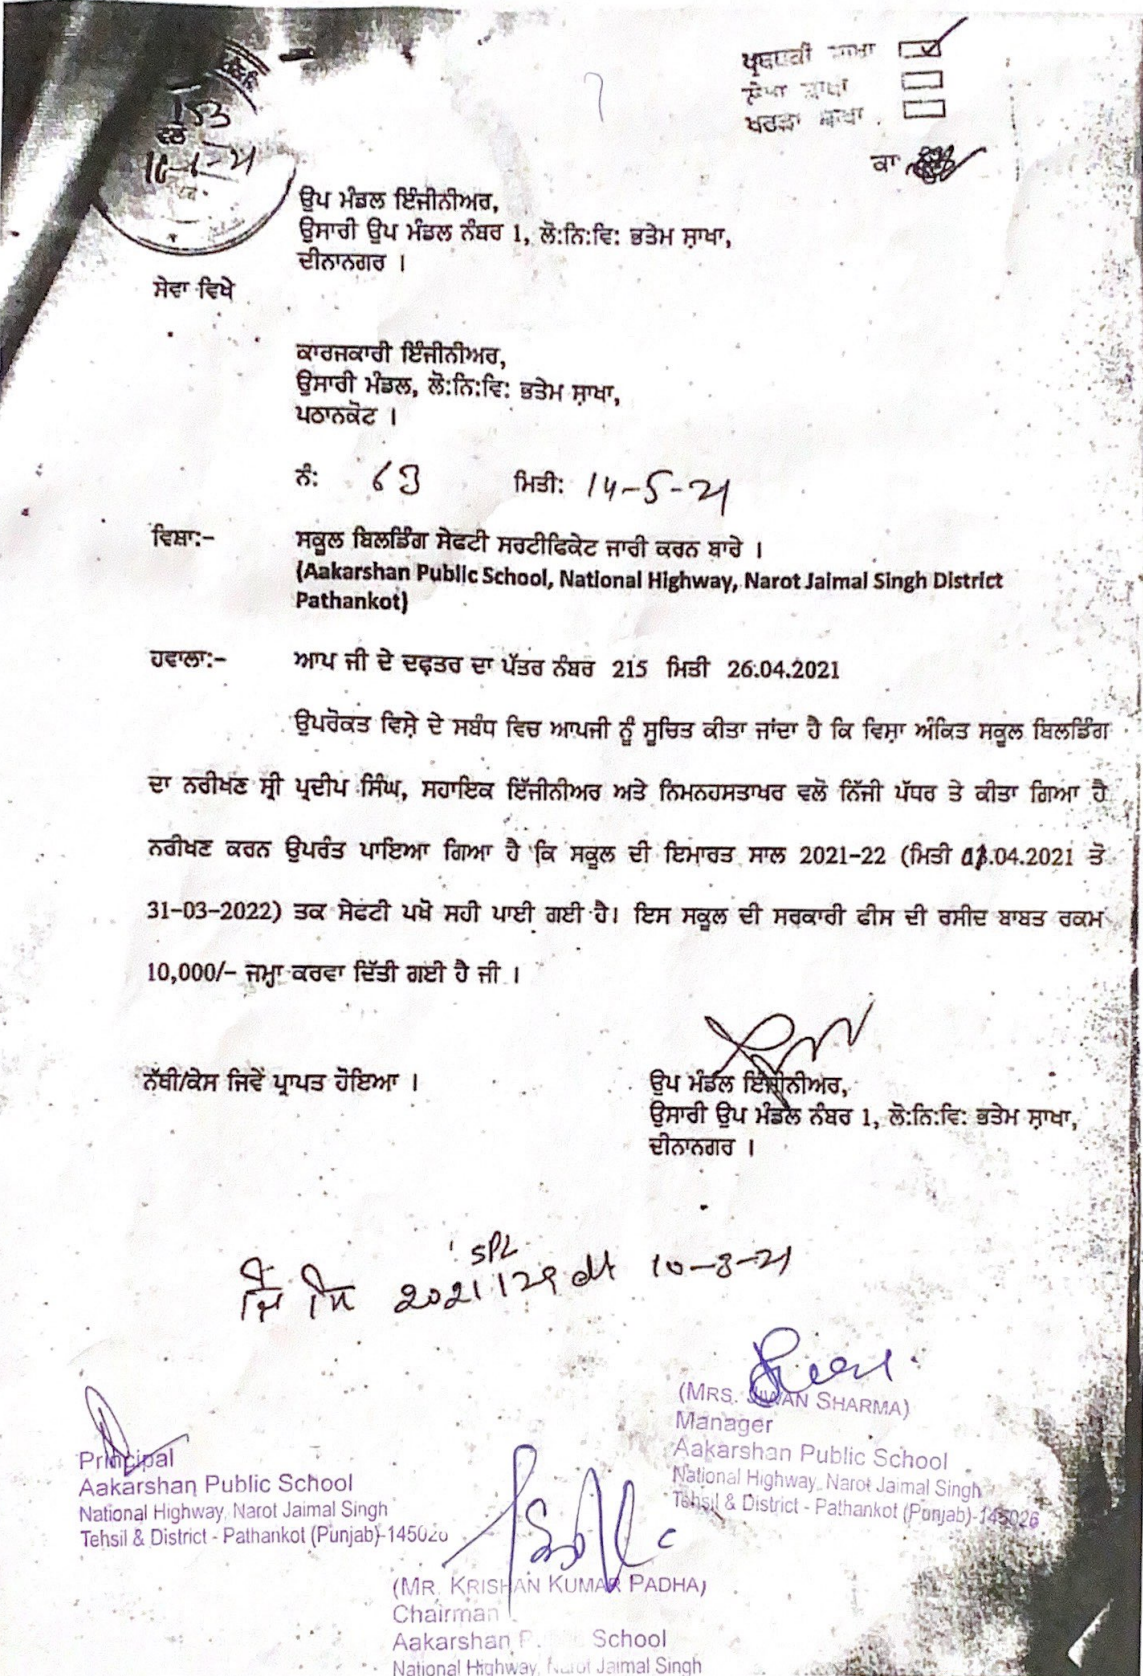 153
16-6-21
ਸ਼ਾਖਾ
ਸ਼ਾਖਾ
ਖਰੜਾ ਸ਼ਾਖਾ
ਕਾ
ਉਪ ਮੰਡਲ ਇੰਜੀਨੀਅਰ,
ਉਸਾਰੀ ਉਪ ਮੰਡਲ ਨੰਬਰ 1, ਲੋ:ਨਿ:ਵਿ: ਭਤੇਮ ਸ਼ਾਖਾ,
ਦੀਨਾਨਗਰ ।
ਸੇਵਾ ਵਿਖੇ
ਕਾਰਜਕਾਰੀ ਇੰਜੀਨੀਅਰ,
ਉਸਾਰੀ ਮੰਡਲ, ਲੋ:ਨਿ:ਵਿ: ਭਤੇਮ ਸ਼ਾਖਾ,
ਪਠਾਨਕੋਟ ।
ਨੰ: 63 ਮਿਤੀ: 14-5-21
ਵਿਸ਼ਾ:- ਸਕੂਲ ਬਿਲਡਿੰਗ ਸੇਫਟੀ ਸਰਟੀਫਿਕੇਟ ਜਾਰੀ ਕਰਨ ਬਾਰੇ ।
(Aakarshan Public School, National Highway, Narot Jaimal Singh District
Pathankot)
ਹਵਾਲਾ:- ਆਪ ਜੀ ਦੇ ਦਫ਼ਤਰ ਦਾ ਪੱਤਰ ਨੰਬਰ 215 ਮਿਤੀ 26.04.2021
ਉਪਰੋਕਤ ਵਿਸ਼ੇ ਦੇ ਸਬੰਧ ਵਿਚ ਆਪਜੀ ਨੂੰ ਸੂਚਿਤ ਕੀਤਾ ਜਾਂਦਾ ਹੈ ਕਿ ਵਿਸ਼ਾ ਅੰਕਿਤ ਸਕੂਲ ਬਿਲਡਿੰਗ
ਦਾ ਨਰੀਖਣ ਸ੍ਰੀ ਪ੍ਰਦੀਪ ਸਿੰਘ, ਸਹਾਇਕ ਇੰਜੀਨੀਅਰ ਅਤੇ ਨਿਮਨਹਸਤਾਖਰ ਵਲੋ ਨਿੱਜੀ ਪੱਧਰ ਤੇ ਕੀਤਾ ਗਿਆ ਹੈ
ਨਰੀਖਣ ਕਰਨ ਉਪਰੰਤ ਪਾਇਆ ਗਿਆ ਹੈ ਕਿ ਸਕੂਲ ਦੀ ਇਮਾਰਤ ਸਾਲ 2021-22 (ਮਿਤੀ .04.2021 ਤੋ
31-03-2022) ਤਕ ਸੇਫਟੀ ਪਖੋ ਸਹੀ ਪਾਈ ਗਈ ਹੈ। ਇਸ ਸਕੂਲ ਦੀ ਸਰਕਾਰੀ ਫੀਸ ਦੀ ਰਸੀਦ ਬਾਬਤ ਰਕਮ
10,000/- ਜਮ੍ਹਾ ਕਰਵਾ ਦਿੱਤੀ ਗਈ ਹੈ ਜੀ ।
ਨੱਥੀ/ਕੇਸ ਜਿਵੇਂ ਪ੍ਰਾਪਤ ਹੋਇਆ ।
ਉਪ ਮੰਡਲ ਇੰਜੀਨੀਅਰ,
ਉਸਾਰੀ ਉਪ ਮੰਡਲ ਨੰਬਰ 1, ਲੋ:ਨਿ:ਵਿ: ਭਤੇਮ ਸ਼ਾਖਾ,
ਦੀਨਾਨਗਰ ।
SPL
2021/29 dt 10-3-21
Principal
Aakarshan Public School
National Highway, Narot Jaimal Singh
Tehsil & District - Pathankot (Punjab)-145026
(MRS. JIWAN SHARMA)
Manager
Aakarshan Public School
National Highway, Narot Jaimal Singh
Tehsil & District - Pathankot (Punjab)-145026
(MR. KRISHAN KUMAR PADHA)
Chairman
Aakarshan P School
National Highway, Narot Jaimal Singh